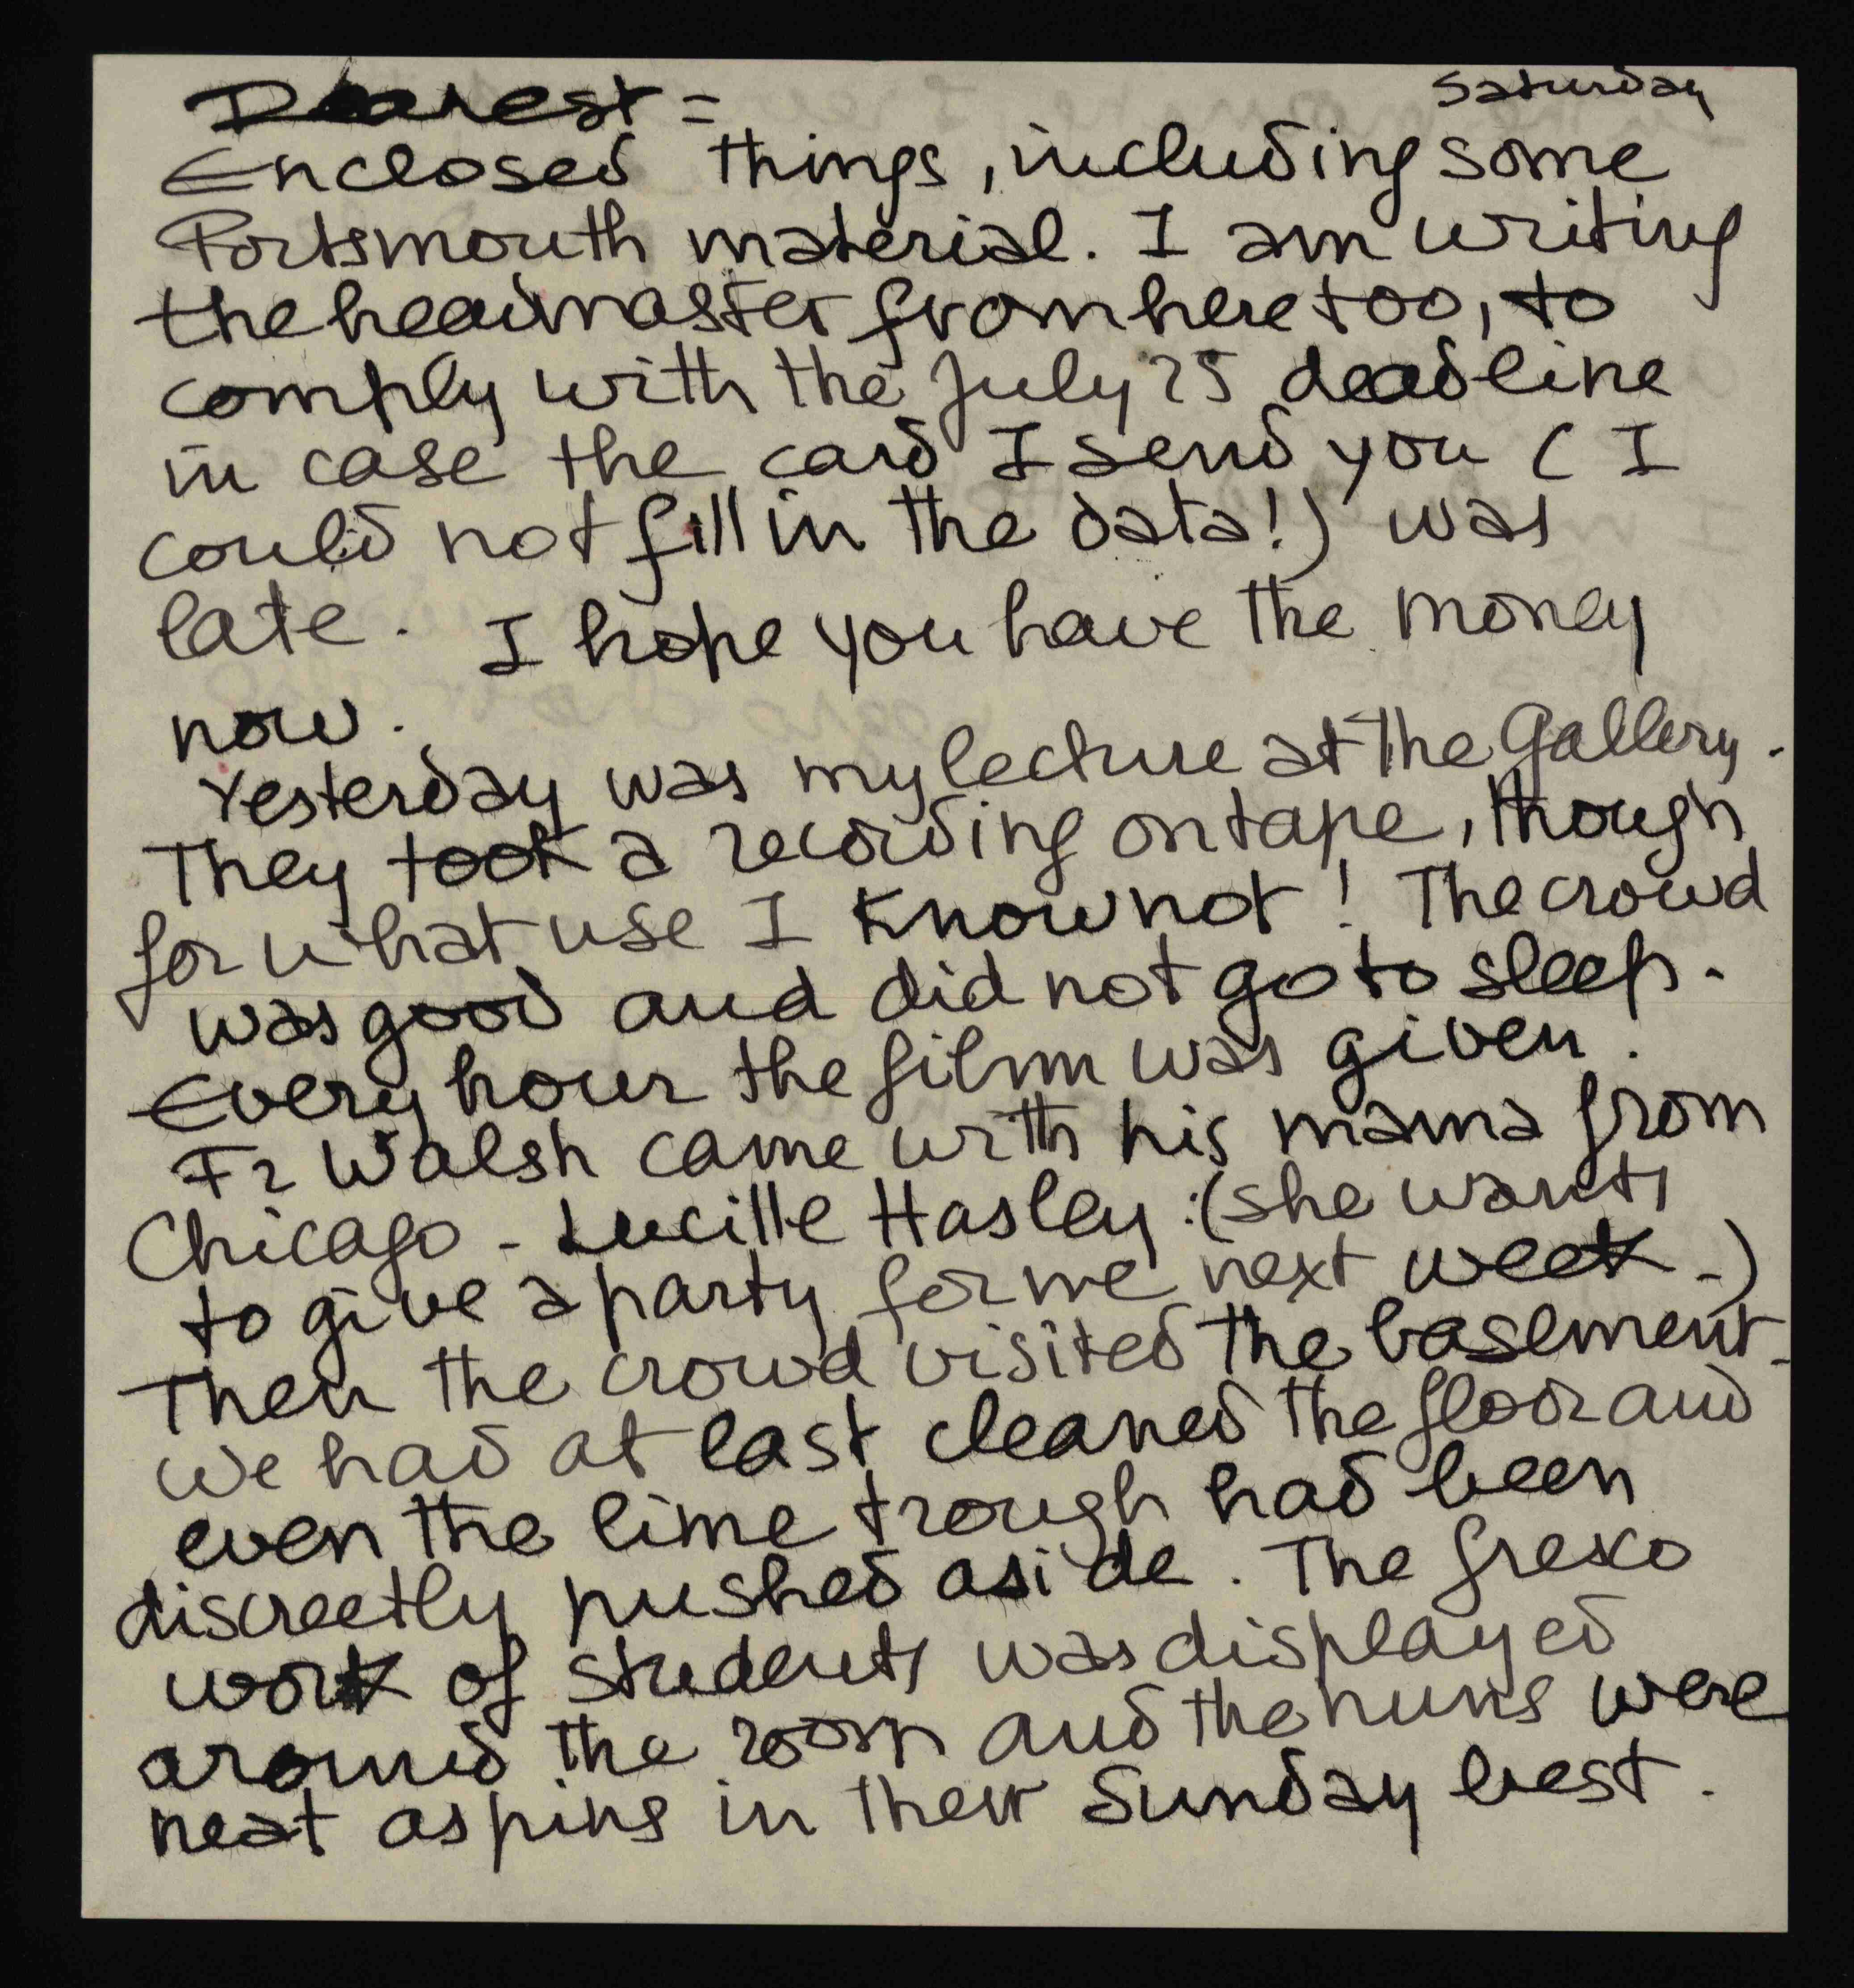 Saturday
Dearest =
Enclosed things, including some
Portsmouth material. I am writing
the headmaster from here too, to
comply with the July 25 deadline
in case the card I send you ( I
could not fill in the data!) was
late. I hope you have the money
now.
Yesterday was my lecture at the Gallery.
They took a recording on tape, though
for what use I know not! The crowd
was good and did not go to sleep.
Every hour the film was given.
Fr Walsh came with his mama from
Chicago - Lucille Hasley : (she wants
to give a party for me next week -)
Then the crowd visited the basement.
We had at last cleaned the floor and
even the lime trough had been
discreetly pushed aside. The fresco
work of students was displayed
around the room and the nuns were
neat as pins in their Sunday best.